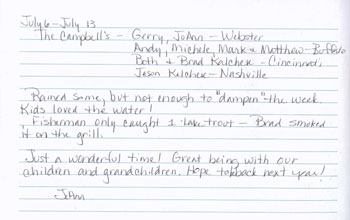 July 6 - July 13
The Campbell's - Gerry, JoAnn - Webster
Andy, Michele, Mark & Matthew - Buffalo
Beth & Brad Kalchek - Cincinnati
Jason Kalchek - Nashville
Rained some, but not enough to "dampen" the week.
Kids loved the water!
Fisherman only caught 1 lake trout - Brad smoked
it on the grill.
Just a wonderful time! Great being with our
children and grandchildren. Hope to back next year!
JoAnn